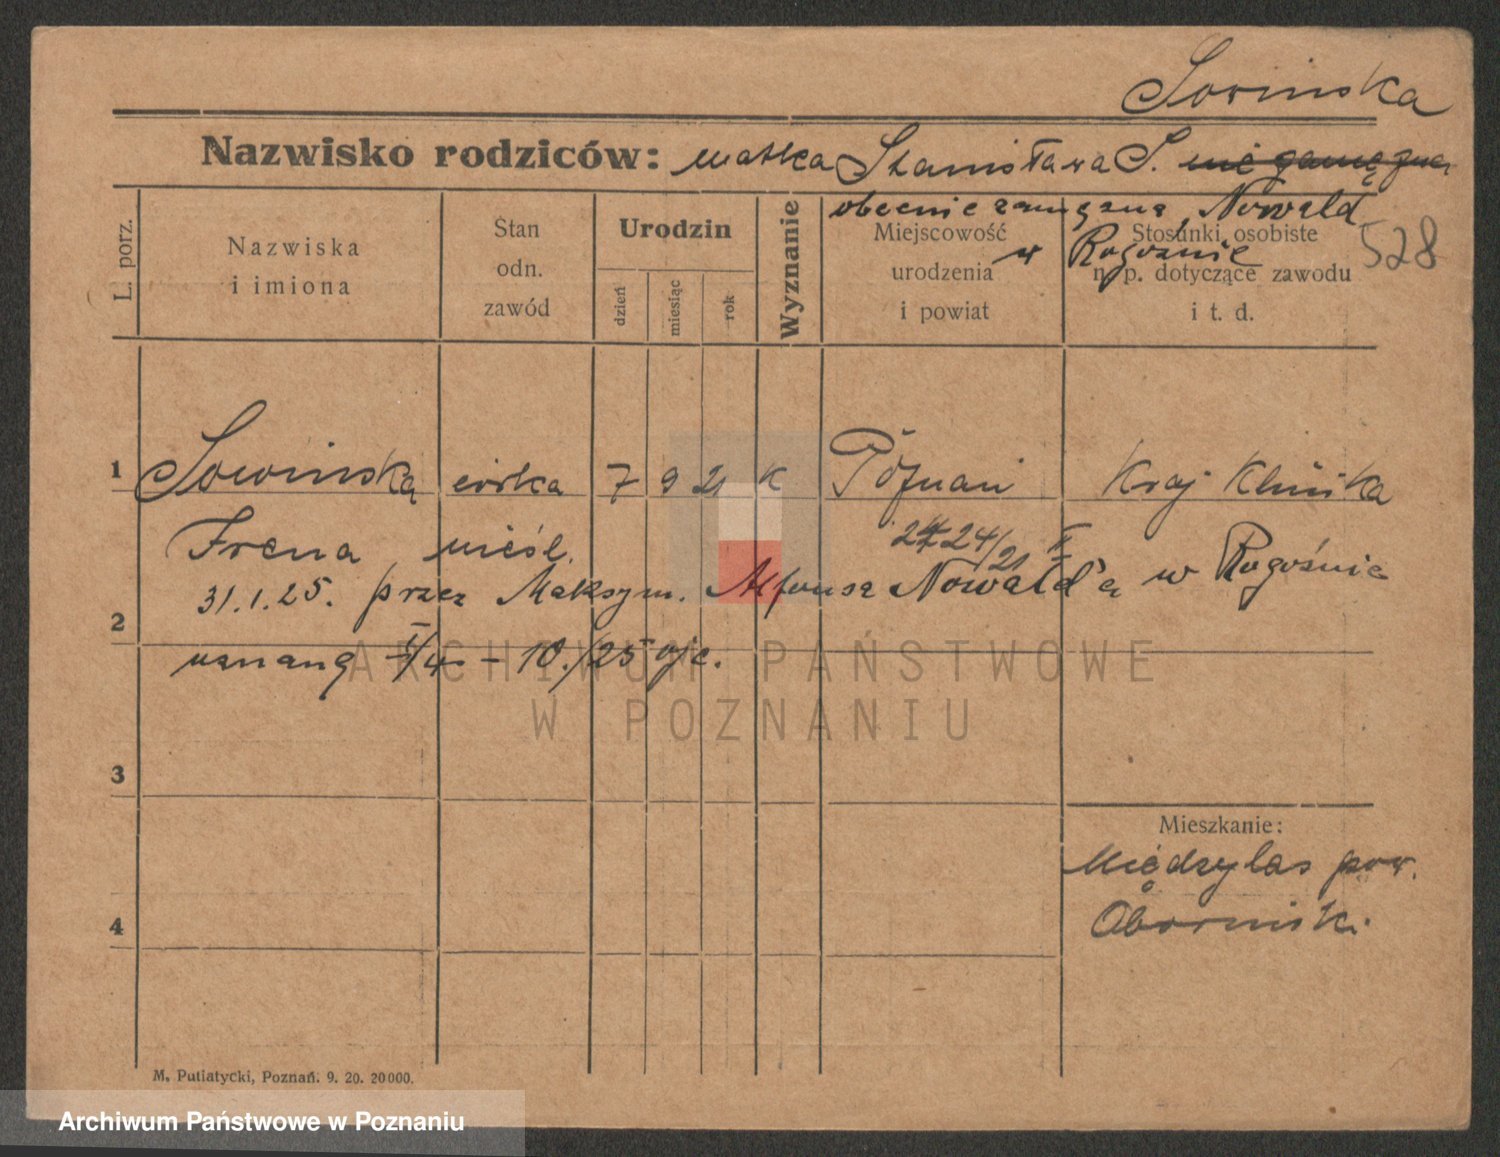 Sowinska
Nazwisko rodziców: matka Stanisława S. nie zamężna
obecnie zamężna Nowald
w Rogoźnie
528
L. porz.
Nazwiska
i imiona
Stan
odn.
zawód
Urodzin
dzień
miesiąc
rok
Wyznanie
Miejscowość
urodzenia
i powiat
Stosunki osobiste
n. p. dotyczące zawodu
i t. d.
1 Sowinska córka 7 9 21 K Poznań Kraj Klinika
Irena nieśl. 24/21
31.1.25. przez Maksym. Alfonsa Nowald'a w Rogoźnie
2
uznaną - 10./25 ojc.
ARCHIWUM PAŃSTWOWE
W POZNANIU
3
Mieszkanie:
Międzylas pow.
Obornik.
4
M. Putiatycki, Poznań. 9. 20. 20000.
Archiwum Państwowe w Poznaniu